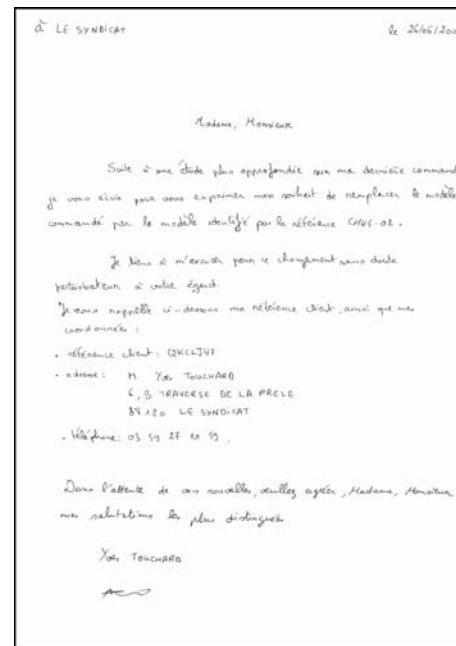 à LE SYNDICAT le 26/06/200
Madame, Monsieur
Suite à une étude plus approfondie sur ma dernière command
je vous écris pour vous exprimer mon souhait de remplacer le modèle
commandé par le modèle identifié par la référence CH45-02.
Je tiens à m'excuser pour ce changement sans doute
perturbateur à votre égard.
Je vous rappelle ci-dessous ma référence client, ainsi que mes
coordonnées :
• référence client : QKCLI47
• adresse : M. Yves TOUCHARD
6, B TRAVERSE DE LA PRELE
88120 LE SYNDICAT
• téléphone : 03 59 27 10 59.
Dans l'attente de vos nouvelles, veuillez agréer, Madame, Monsieur
mes salutations les plus distinguées
Yves TOUCHARD